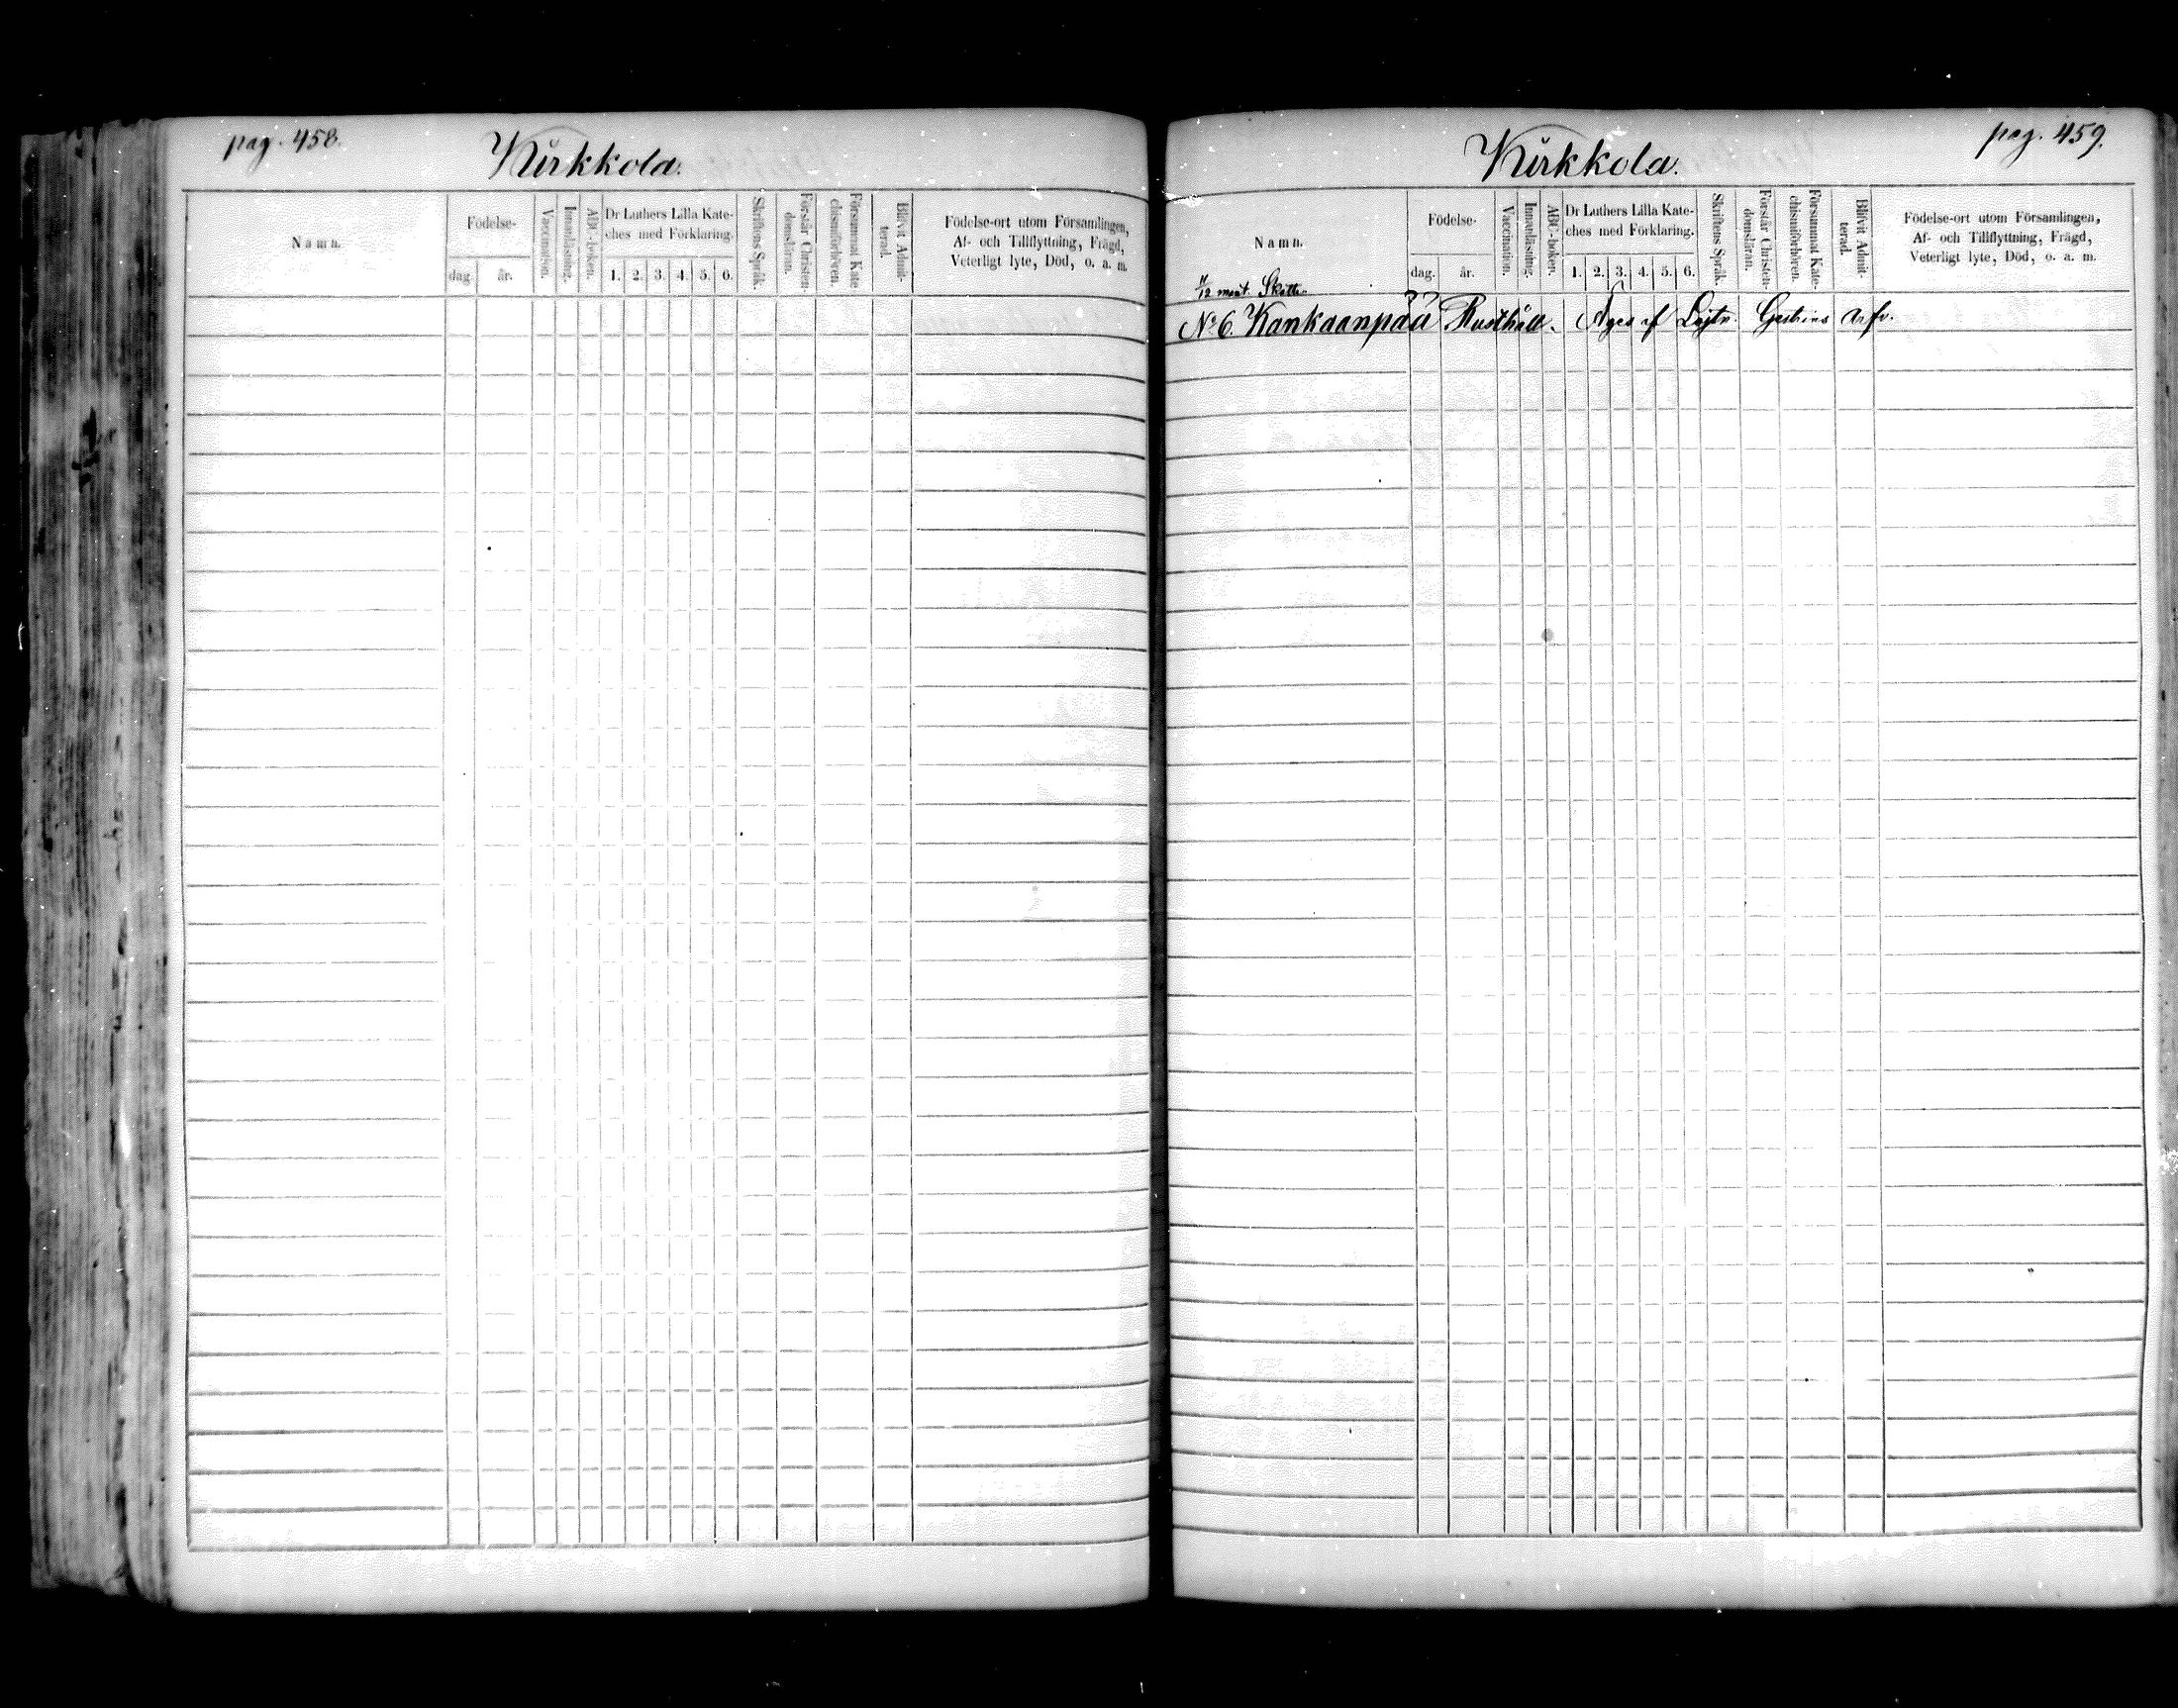 pag. 458.
Kirkkola.
Namn.
Födelse-
dag.
år.
Vaccination.
Innanläsning.
ABC-boken.
Dr Luthers Lilla Kate-
ches med Förklaring.
1. 2. 3. 4. 5. 6.
Skriftens Språk.
Förstår Christen-
domsläran.
Försummat Kate-
chismiförhören.
Blifvit Admit-
terad.
Födelse-ort utom Församlingen,
Af- och Tillflyttning, Frägd,
Veterligt lyte, Död, o. a. m.
pag. 459.
Kirkkola.
Namn.
Födelse-
dag.
år.
Vaccination.
Innanläsning.
ABC-boken.
Dr Luthers Lilla Kate-
ches med Förklaring.
1. 2. 3. 4. 5. 6.
Skriftens Språk.
Förstår Christen-
domsläran.
Försummat Kate-
chismiförhören.
Blifvit Admit-
terad.
Födelse-ort utom Församlingen,
Af- och Tillflyttning, Frägd,
Veterligt lyte, Död, o. a. m.
mant. Skatte
No 6. Kankaanpää Rusthåll. Äges af Löjtn. Gestrins arfv.